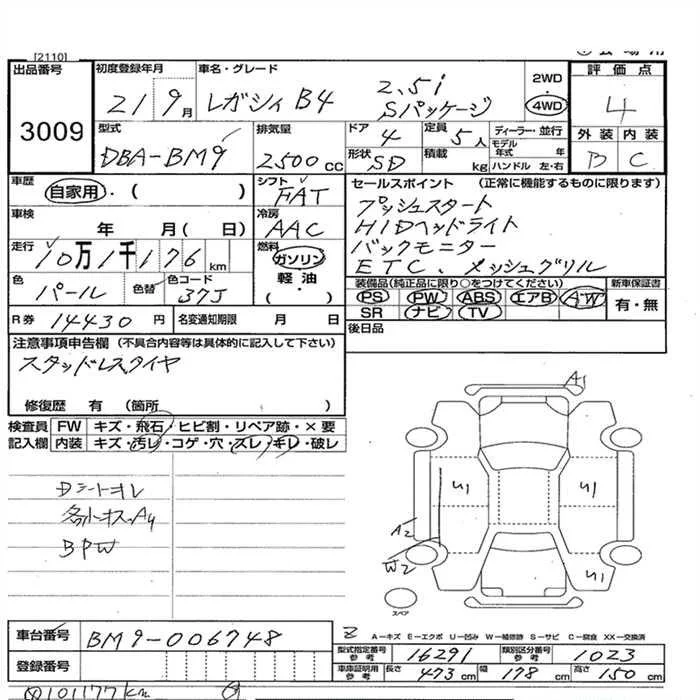 [2110]
出品番号
3009
初度登録年月
21 9月
車名・グレード
レガシィ B4
2.5i
Sパッケージ
2WD
4WD
評価点
4
外装 内装
B C
型式
DBA-BM9
排気量
2500cc
ドア
4
形状
SD
定員
5人
積載
kg
ディーラー・並行
モデル年式 年
ハンドル 左・右
車歴
自家用・( )
シフト
FAT
車検
年 月( 日)
冷房
AAC
走行
10万1千176km
燃料
ガソリン
軽油
( ・ )
色
パール
色替
色コード
37J
R券 14430円
名変通知期限 月 日
セールスポイント (正常に機能するものに限ります)
プッシュスタート
HIDヘッドライト
バックモニター
ETC、メッシュグリル
装備品(純正品に限り○をつけてください)
PS PW ABS エアB AW
SR ナビ TV
新車保証書
有・無
後日品
注意事項申告欄 (不具合内容等は具体的に記入して下さい)
スタッドレスタイヤ
修復歴 有 (箇所 )
検査員 FW キズ・飛石・ヒビ割・リペア跡・×要
記入欄 内装 キズ・汚レ・コゲ・穴・スレ・キレ・破レ
A1
U1
U1
A2
W2
U1
スペア
A-キズ E-エクボ U-凹み W-補修跡 S-サビ C-腐食 XX-交換済
車台番号 BM9-006748
登録番号
型式指定番号 参考 16291
類別区分番号 参考 1023
車庫証明用 参考 長さ 473cm 幅 178cm 高さ 150cm
101177km